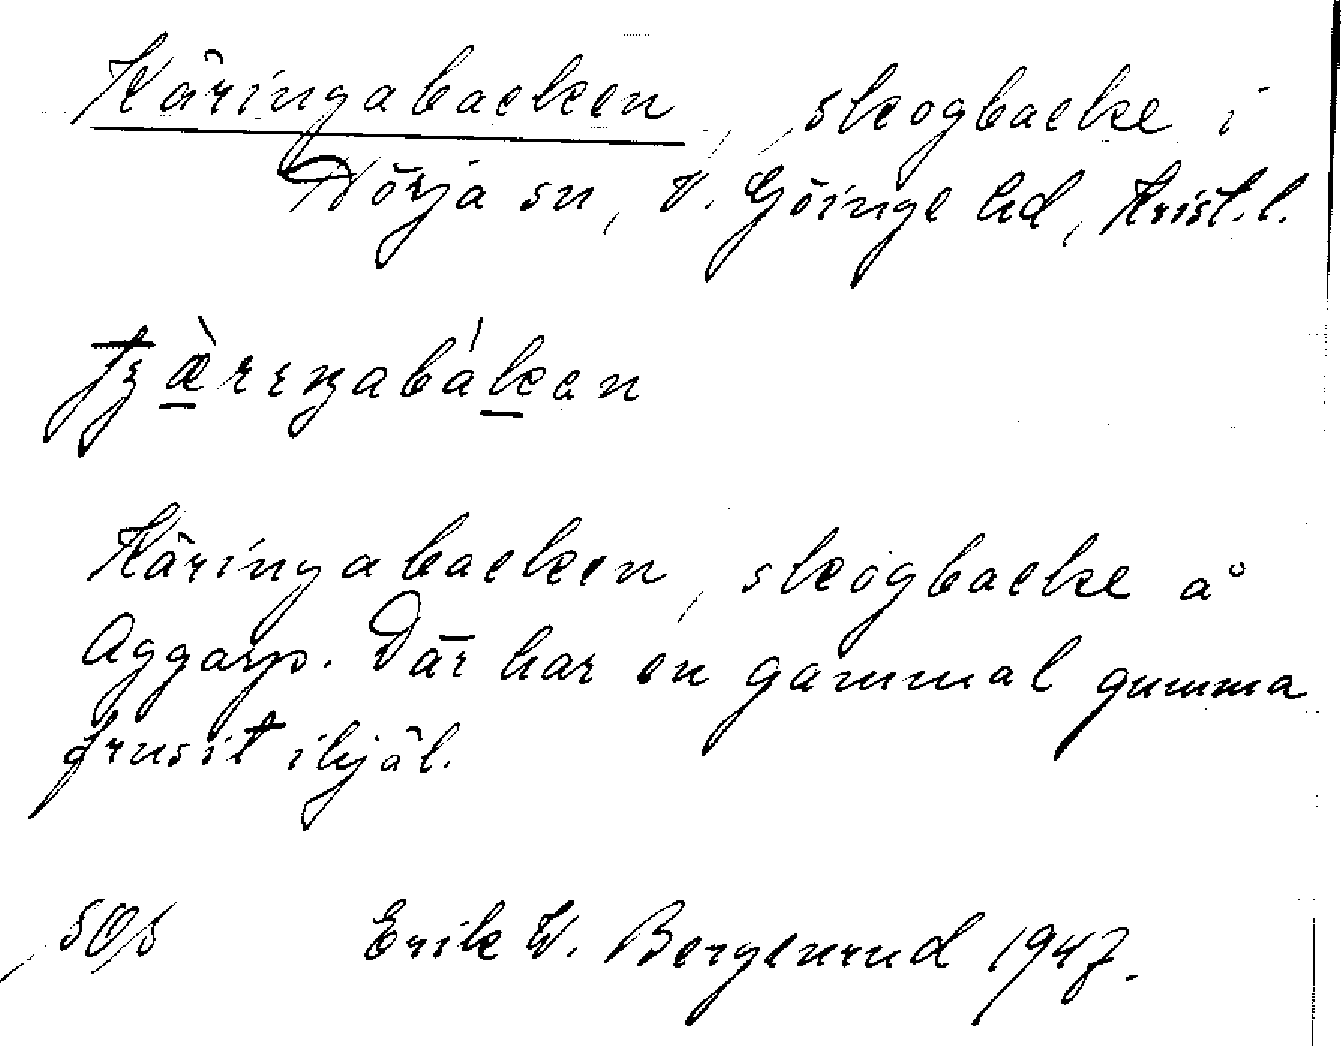 Käringabacken, skogbacke i
Nörja sn, V. Göinge hd, Krist. l.
Käringabacken, skogbacke å
Aggarp. Där har en gammal gumma
frusit ihjäl.
Erik W. Bergenrud 1947.